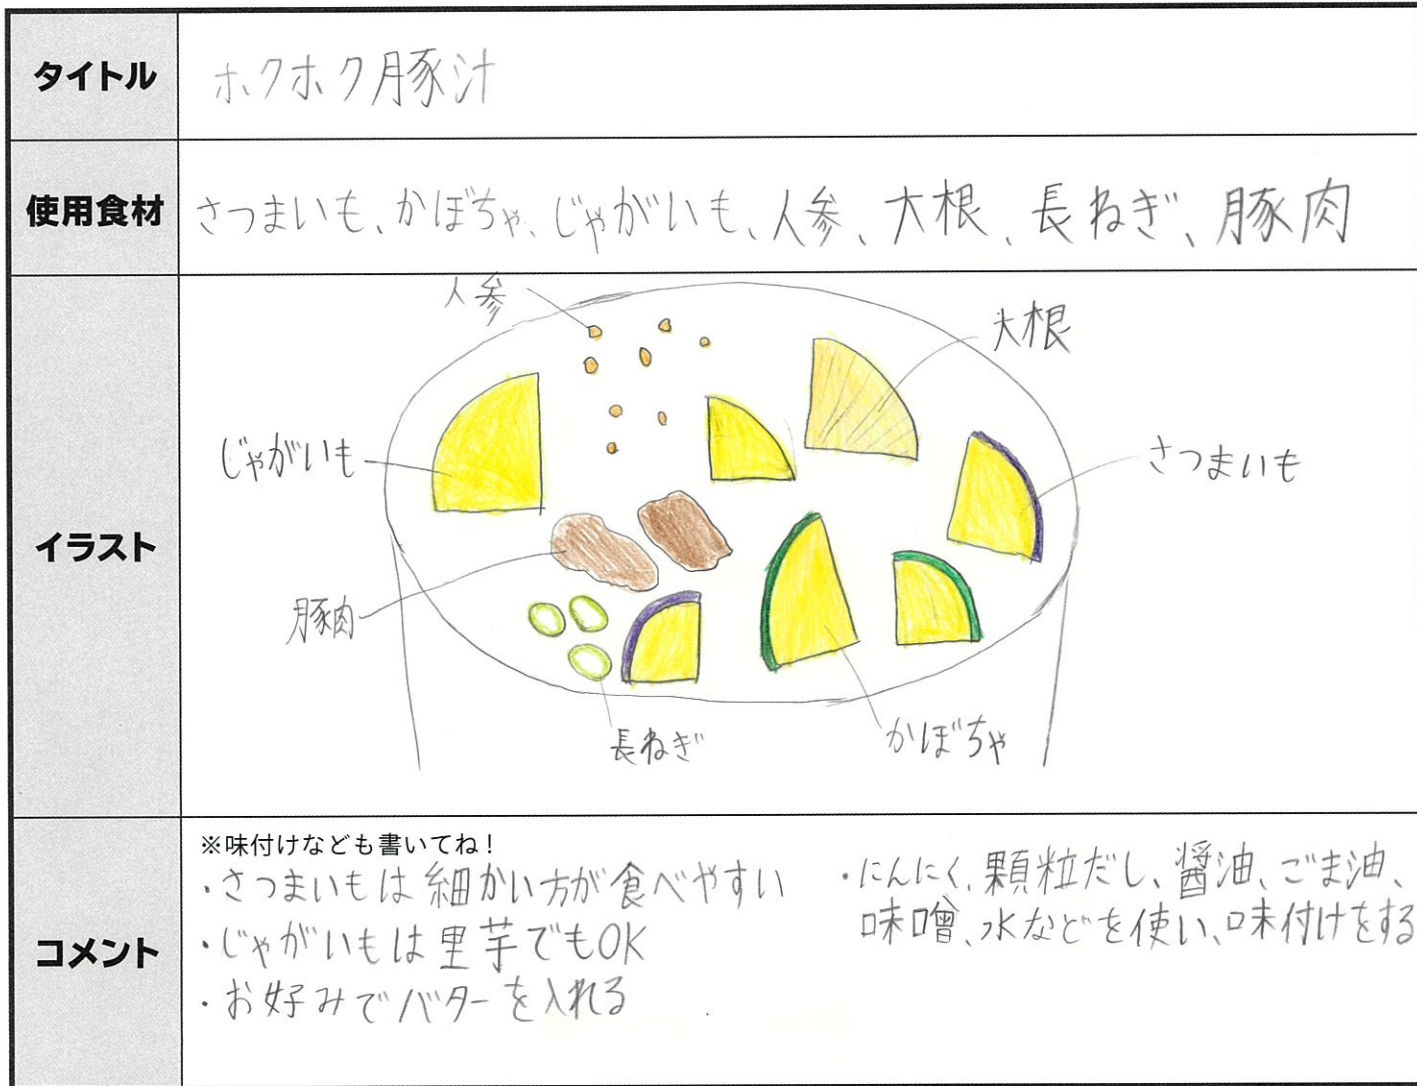 タイトル
ホクホク豚汁
使用食材
さつまいも、かぼちゃ、じゃがいも、人参、大根、長ねぎ、豚肉
イラスト
人参
大根
じゃがいも
さつまいも
豚肉
長ねぎ
かぼちゃ
コメント
※味付けなども書いてね！
・さつまいもは細かい方が食べやすい
・じゃがいもは里芋でもOK
・お好みでバターを入れる
・にんにく、顆粒だし、醤油、ごま油、
味噌、水などを使い、味付けをする